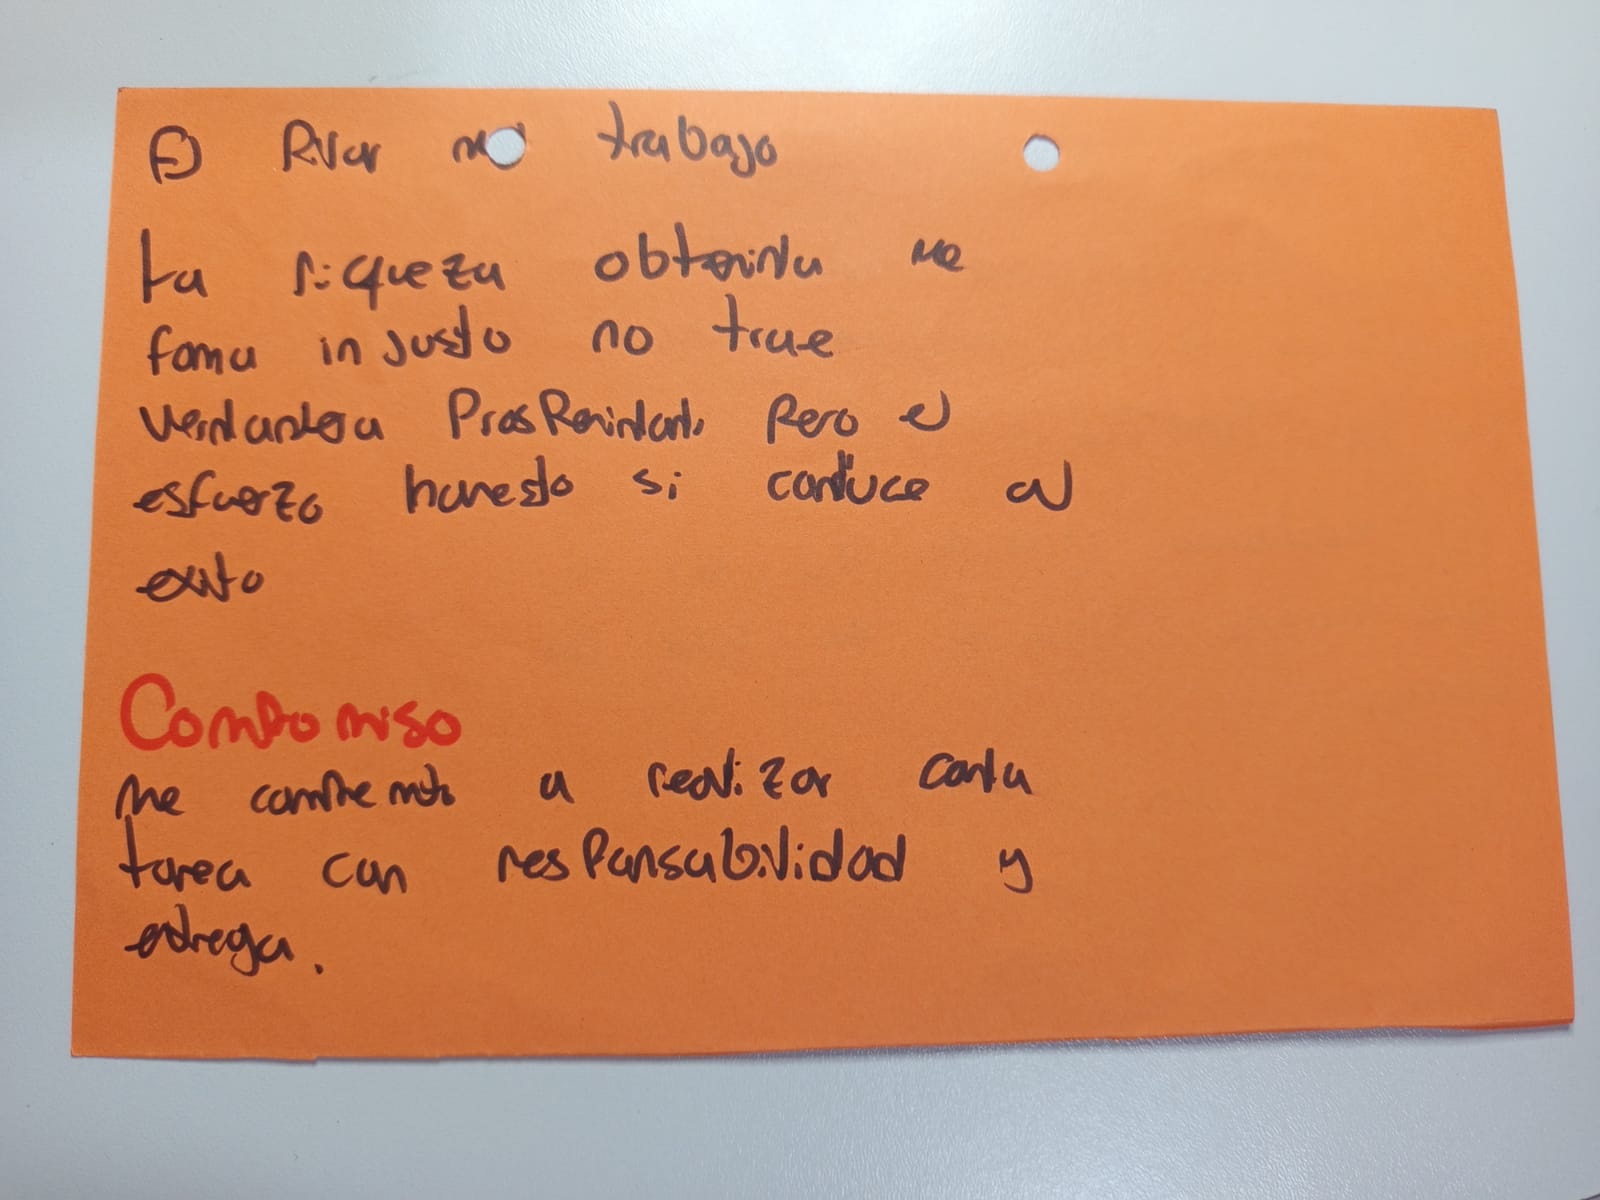 trabajo
La riqueza obtenida de
forma injusto no trae
verdadera Prosperidad, Pero el
esfuerzo honesto si conduce al
exito
Compromiso
Me comprometo a realizar cada
tarea con responsabilidad y
entrega.